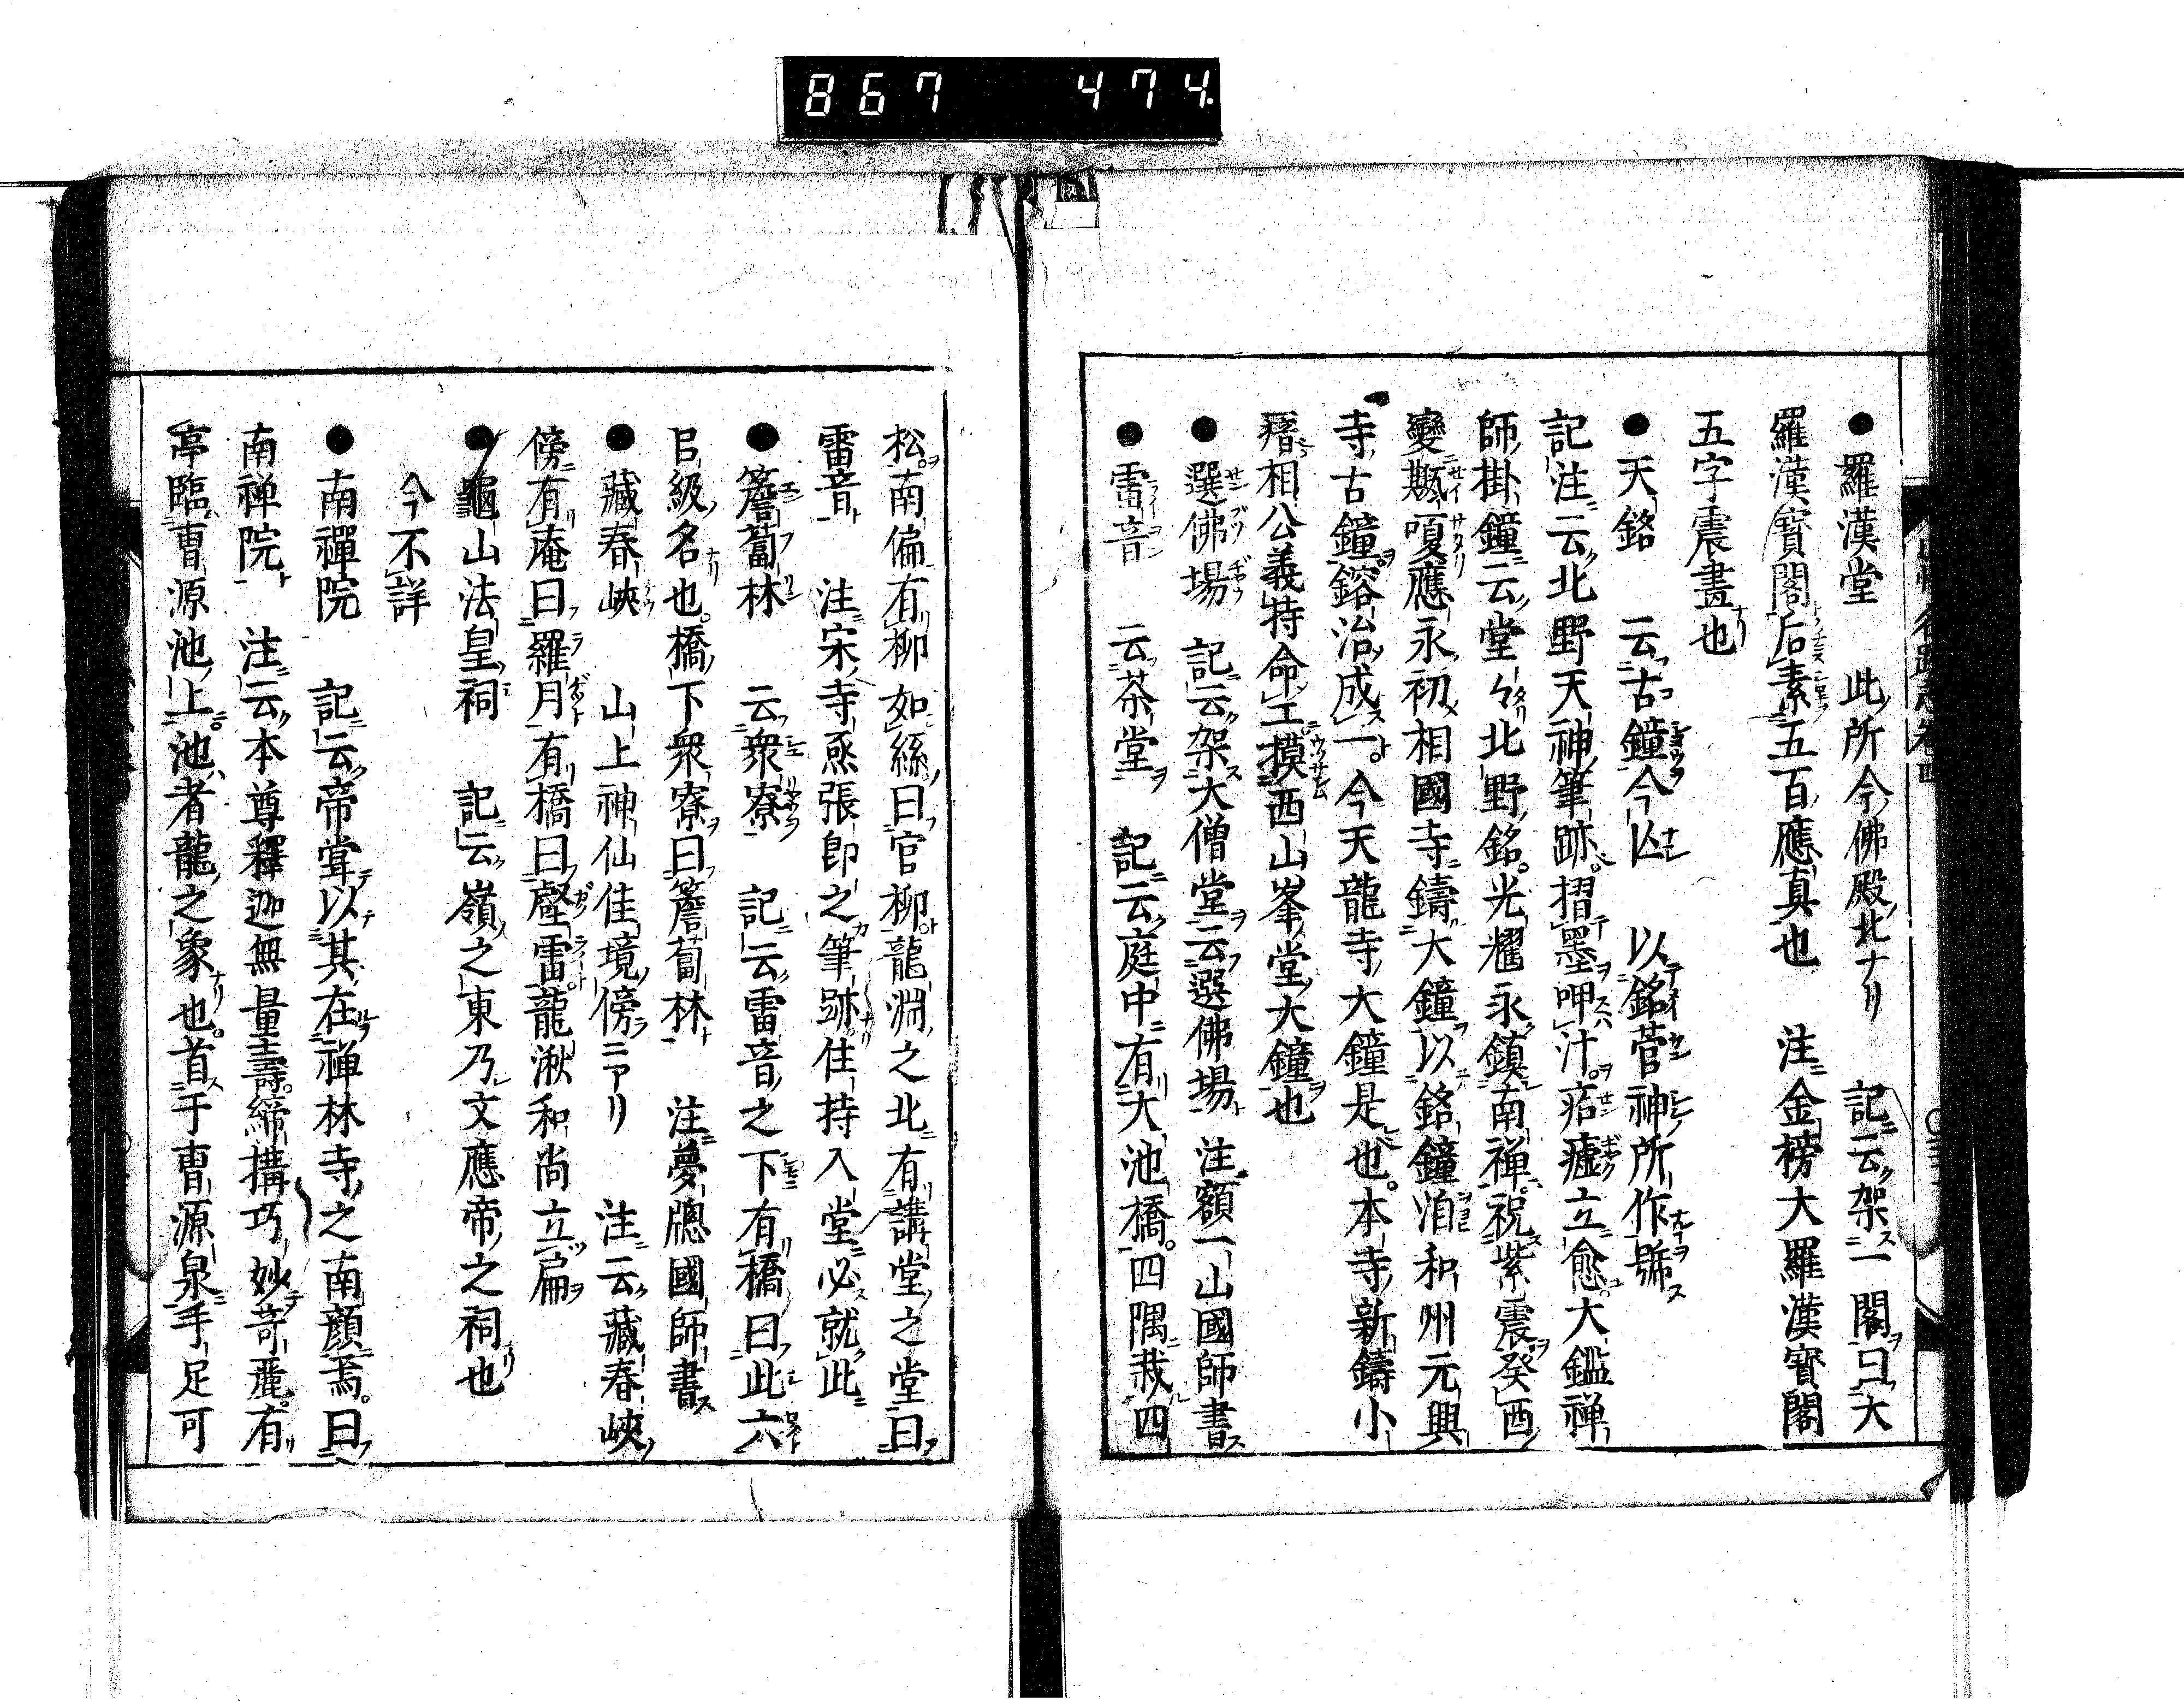 867 474
●羅漢堂 此所今佛殿北ナリ 記云架一閣曰大
羅漢寶閣后素五百應真也 注金榜大羅漢寶閣
五字震畫也
●天銘 云古鐘今亾 以銘菅神所作號
記注云北野天神筆跡摺墨呷汁痁瘧立愈大鑑禅
師掛鐘云堂々北野銘光耀永鎮南禅祝紫震癸酉
變歘嗄應永初相國寺鑄大鐘以銘鐘洎和州元興
寺古鐘鎔冶成一今天龍寺大鐘是也本寺新鑄小
相公義持命工摸西山峯堂大鐘也
●選佛場 記云架大僧堂云選佛場 注額一山國師書
●雷音 云茶堂 記云庭中有大池橋四隅栽四
松南偏有柳如絲曰官柳龍淵之北有講堂之堂曰
雷音 注宋寺丞張即之筆跡住持入堂必就此
●簷蔔林 云衆寮 記云雷音之下有橋曰此六
㠯級名也橋下衆寮曰簷蔔林 注夢牕國師書
●藏春峽 山上神仙佳境傍ニアリ 注云藏春峽
傍有庵曰羅月有橋曰壑雷龍湫和尚立扁
●龜山法皇祠 記云嶺之東乃文應帝之祠也
今不詳
●南禪院 記云帝甞以其在禅林寺之南顔焉曰
南禅院 注云本尊釋迦無量壽締搆巧妙竒麗有
亭臨曹源池上池者龍之象也首于曹源泉手足可